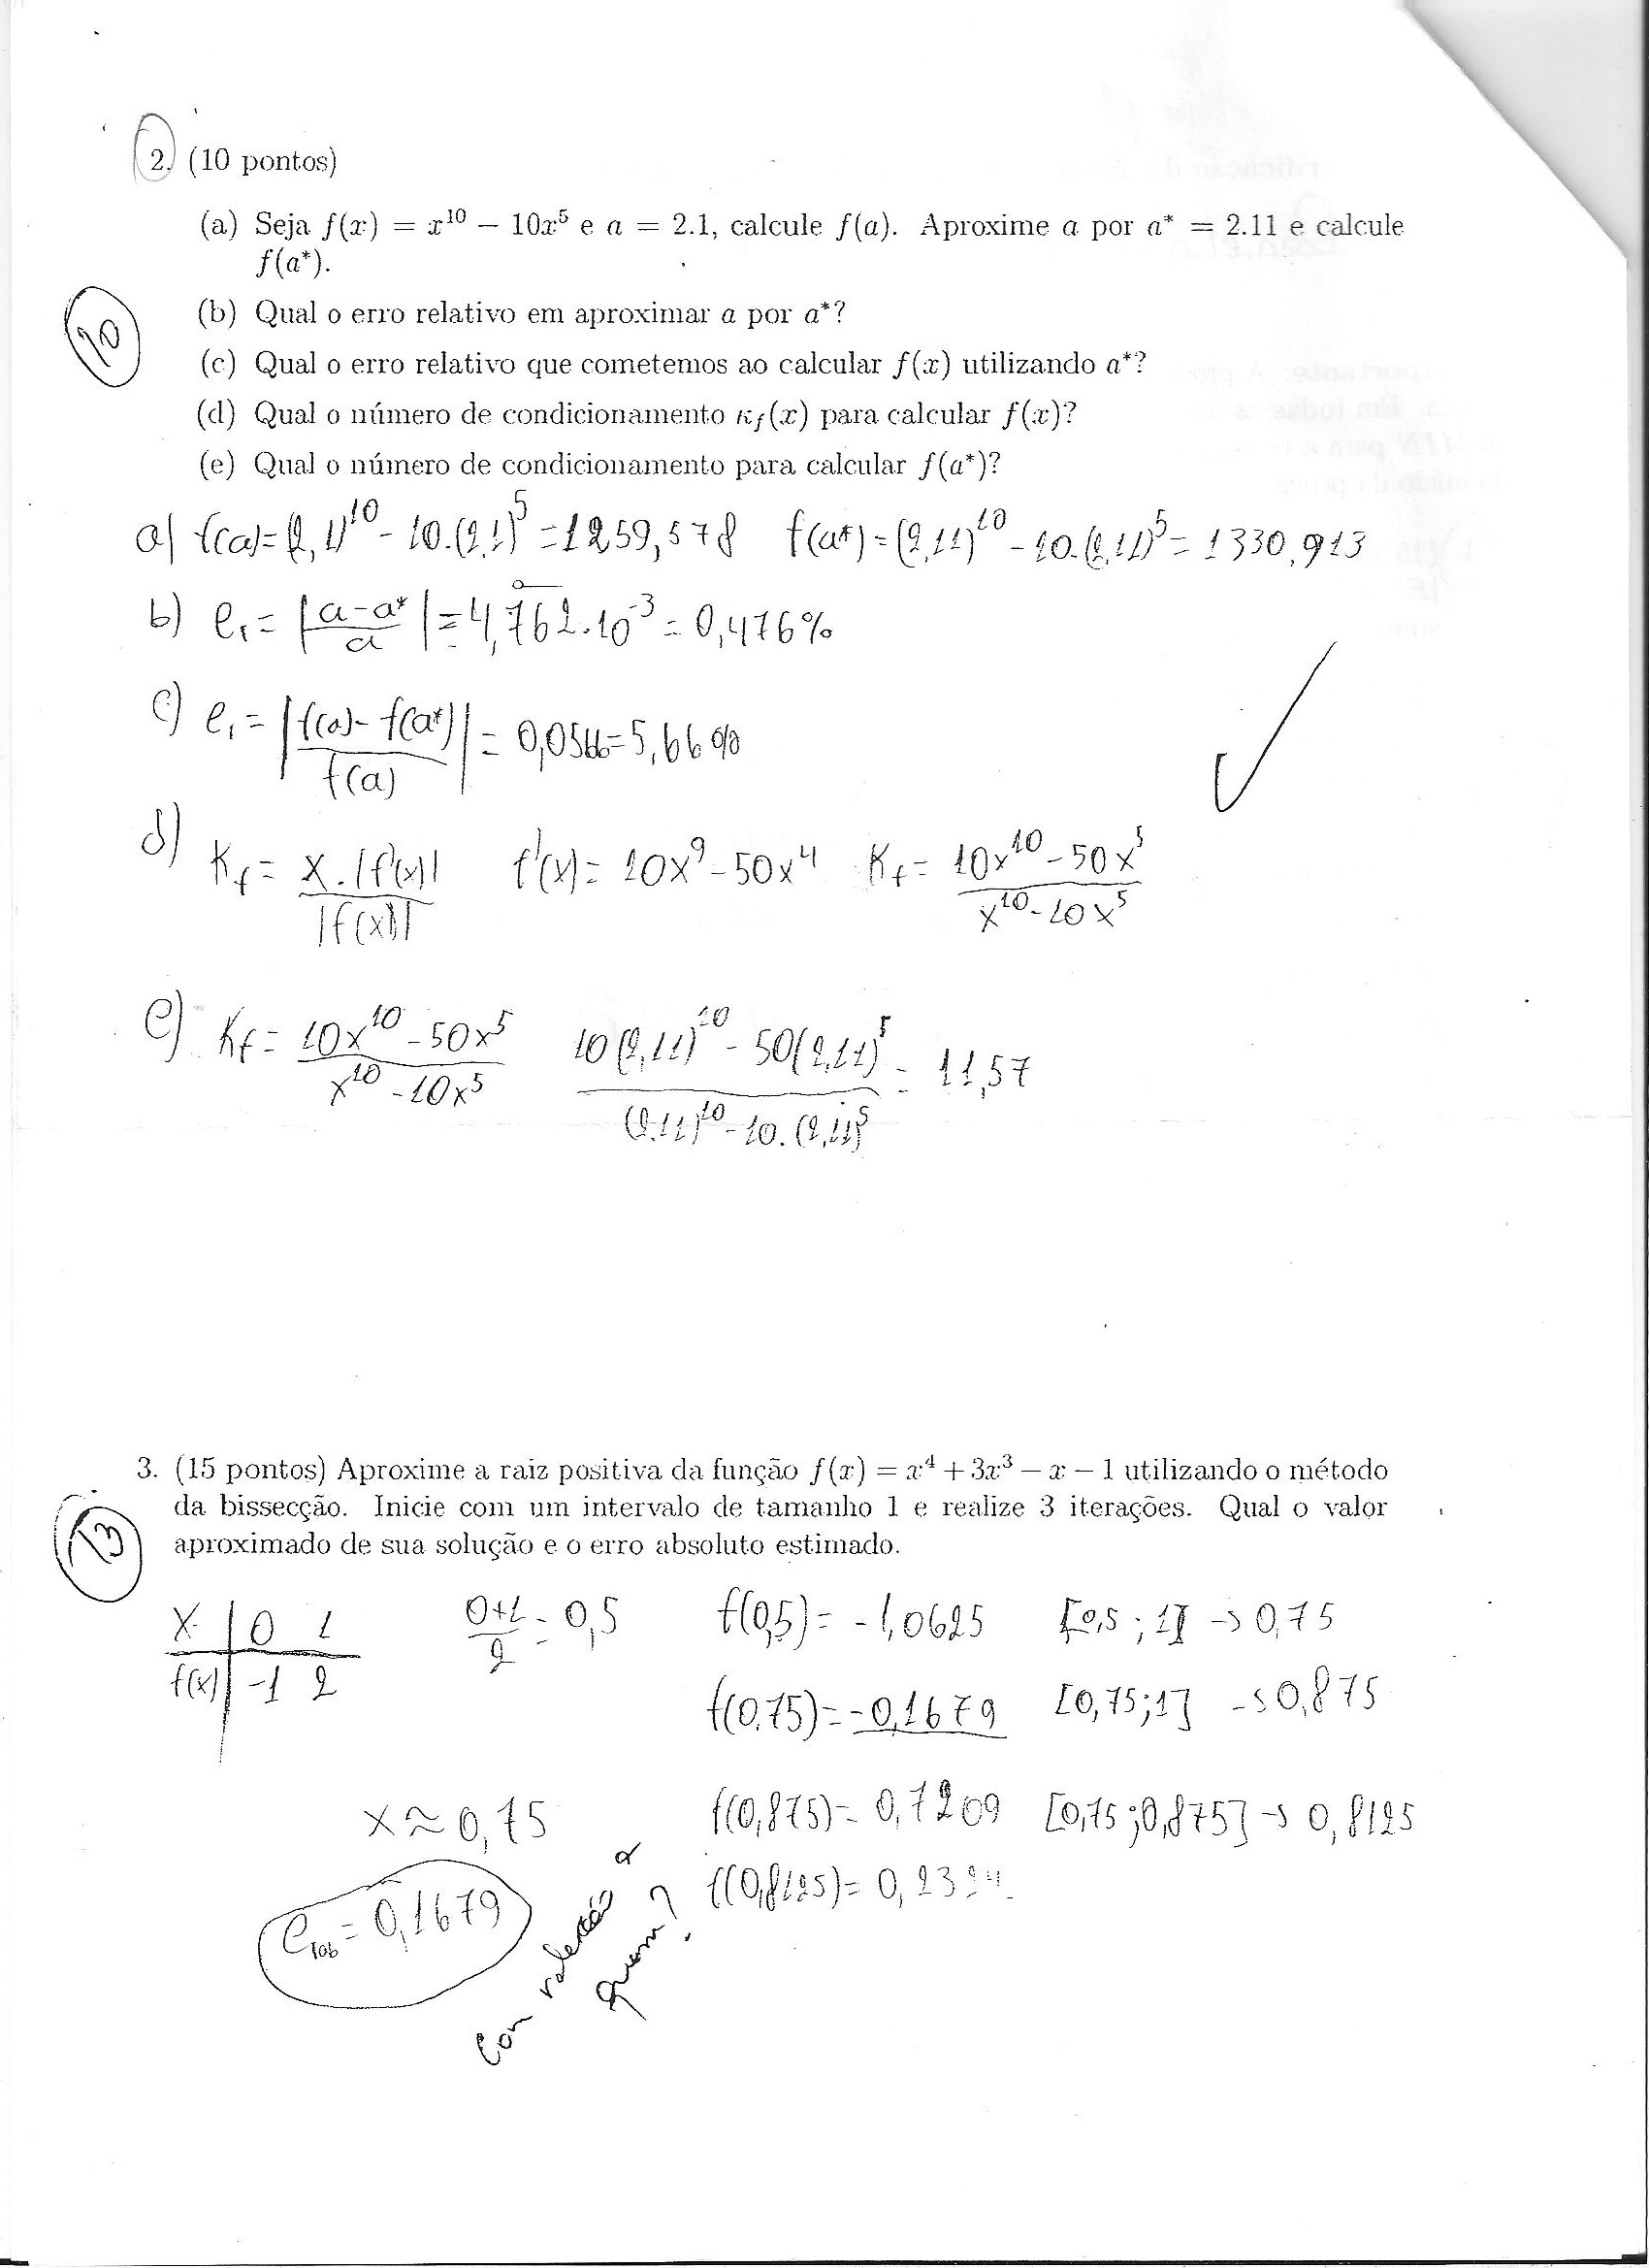 2. (10 pontos)
(a) Seja f(x) = x^10 − 10x^5 e a = 2.1, calcule f(a). Aproxime a por a* = 2.11 e calcule
f(a*).
(b) Qual o erro relativo em aproximar a por a*?
10
(c) Qual o erro relativo que cometemos ao calcular f(x) utilizando a*?
(d) Qual o número de condicionamento κ_f(x) para calcular f(x)?
(e) Qual o número de condicionamento para calcular f(a*)?
a) f(a) = (2,1)^10 - 10.(2,1)^5 = 1259,578 f(a*) = (2,11)^10 - 10.(2,11)^5 = 1330,913
b) e_r = |(a-a*)/a| = 4,762.10^-3 = 0,476%
c) e_r = |(f(a)-f(a*))/f(a)| = 0,0566 = 5,66%
d) K_f = x.|f'(x)|/|f(x)| f'(x) = 10x^9 - 50x^4 K_f = (10x^10 - 50x^5)/(x^10 - 10x^5)
e) K_f = (10x^10 - 50x^5)/(x^10 - 10x^5) (10(2,11)^10 - 50(2,11)^5)/((2,11)^10 - 10.(2,11)^5) = 11,57
3. (15 pontos) Aproxime a raiz positiva da função f(x) = x^4 + 3x^3 − x − 1 utilizando o método
da bissecção. Inicie com um intervalo de tamanho 1 e realize 3 iterações. Qual o valor
aproximado de sua solução e o erro absoluto estimado.
13
x | 0 1 (0+1)/2 = 0,5 f(0,5) = -1,0625 [0,5 ; 1] -> 0,75
f(x) | -1 2 f(0,75) = -0,1679 [0,75;1] -> 0,875
x ≈ 0,75 f(0,875) = 0,7209 [0,75;0,875] -> 0,8125
f(0,8125) =
= 0,1679
Com relação a
quem?